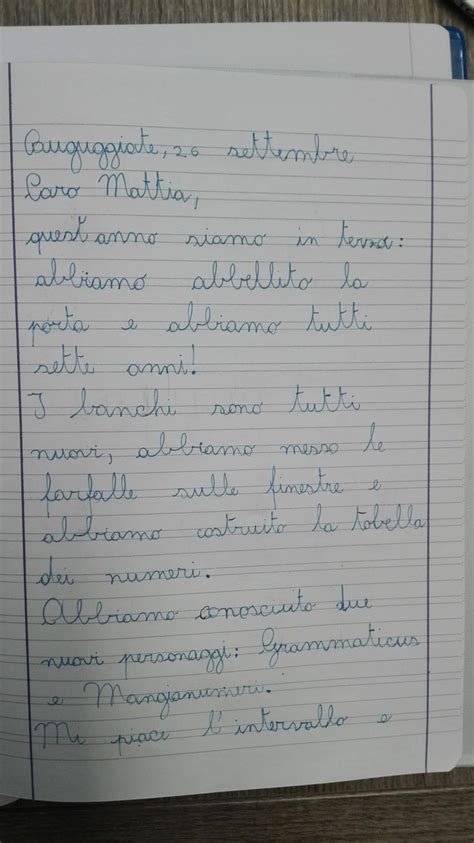 Cuguggiate, 26 settembre
Caro Mattia,
quest'anno siamo in terza:
abbiamo abbellito la
porta e abbiamo tutti
sette anni!
I banchi sono tutti
nuovi, abbiamo messo le
farfalle sulle finestre e
abbiamo costruito la tabella
dei numeri.
Abbiamo conosciuto due
nuovi personaggi: Grammaticus
e Mangianumeri.
Mi piace l'intervallo e